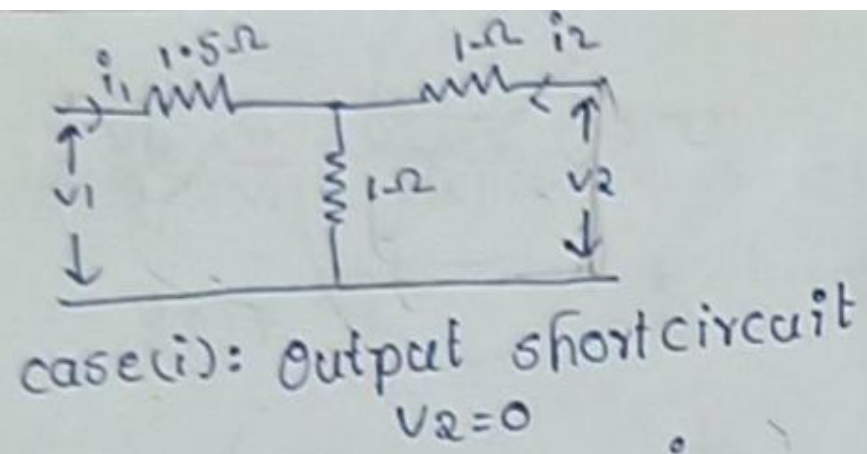 i1 1.5Ω 1Ω i2
V1 1Ω V2
case(i): Output shortcircuit
V2=0